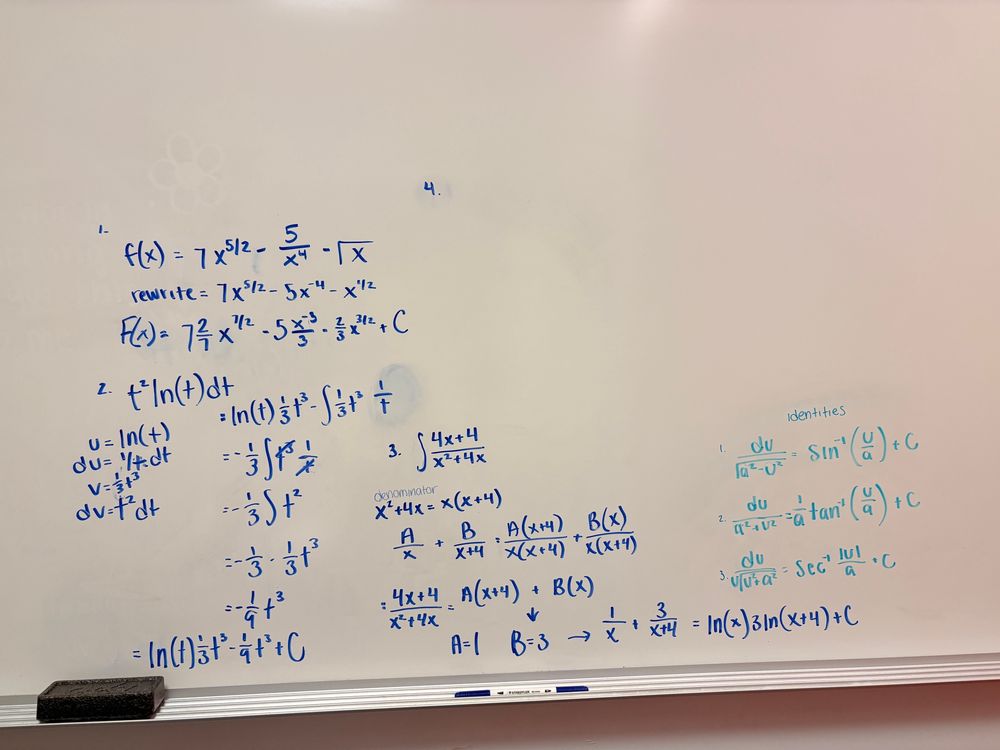 4.
1.
f(x) = 7x^{5/2} - \frac{5}{x^4} - \sqrt{x}
rewrite = 7x^{5/2} - 5x^{-4} - x^{1/2}
F(x) = 7\frac{2}{7}x^{7/2} - 5\frac{x^{-3}}{3} - \frac{2}{3}x^{3/2} + C
2. t^2 ln(t) dt
u = ln(t)
du = 1/t \cdot dt
v = \frac{1}{3}t^3
dv = t^2 dt
= ln(t) \frac{1}{3}t^3 - \int \frac{1}{3}t^3 \frac{1}{t}
= -\frac{1}{3} \int t^3 \frac{1}{t}
= -\frac{1}{3} \int t^2
= -\frac{1}{3} \cdot \frac{1}{3}t^3
= -\frac{1}{9}t^3
= ln(t) \frac{1}{3}t^3 - \frac{1}{9}t^3 + C
3. \int \frac{4x+4}{x^2+4x}
denominator
x^2+4x = x(x+4)
\frac{A}{x} + \frac{B}{x+4} = \frac{A(x+4)}{x(x+4)} + \frac{B(x)}{x(x+4)}
= \frac{4x+4}{x^2+4x} = A(x+4) + B(x)
↓
A=1 B=3 → \frac{1}{x} + \frac{3}{x+4} = ln(x)3ln(x+4)+C
identities
1. \frac{du}{\sqrt{a^2-u^2}} = sin^{-1}(\frac{u}{a}) + C
2. \frac{du}{a^2+u^2} = \frac{1}{a} tan^{-1}(\frac{u}{a}) + C
3. \frac{du}{u\sqrt{u^2+a^2}} = sec^{-1} \frac{|u|}{a} + C